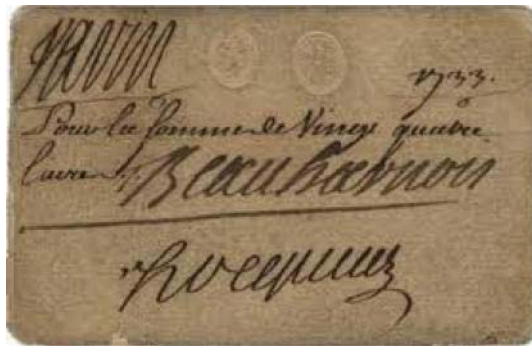 Varin
1733.
Pour la somme de Vingt quatre
livres Beauharnois
Hocquart